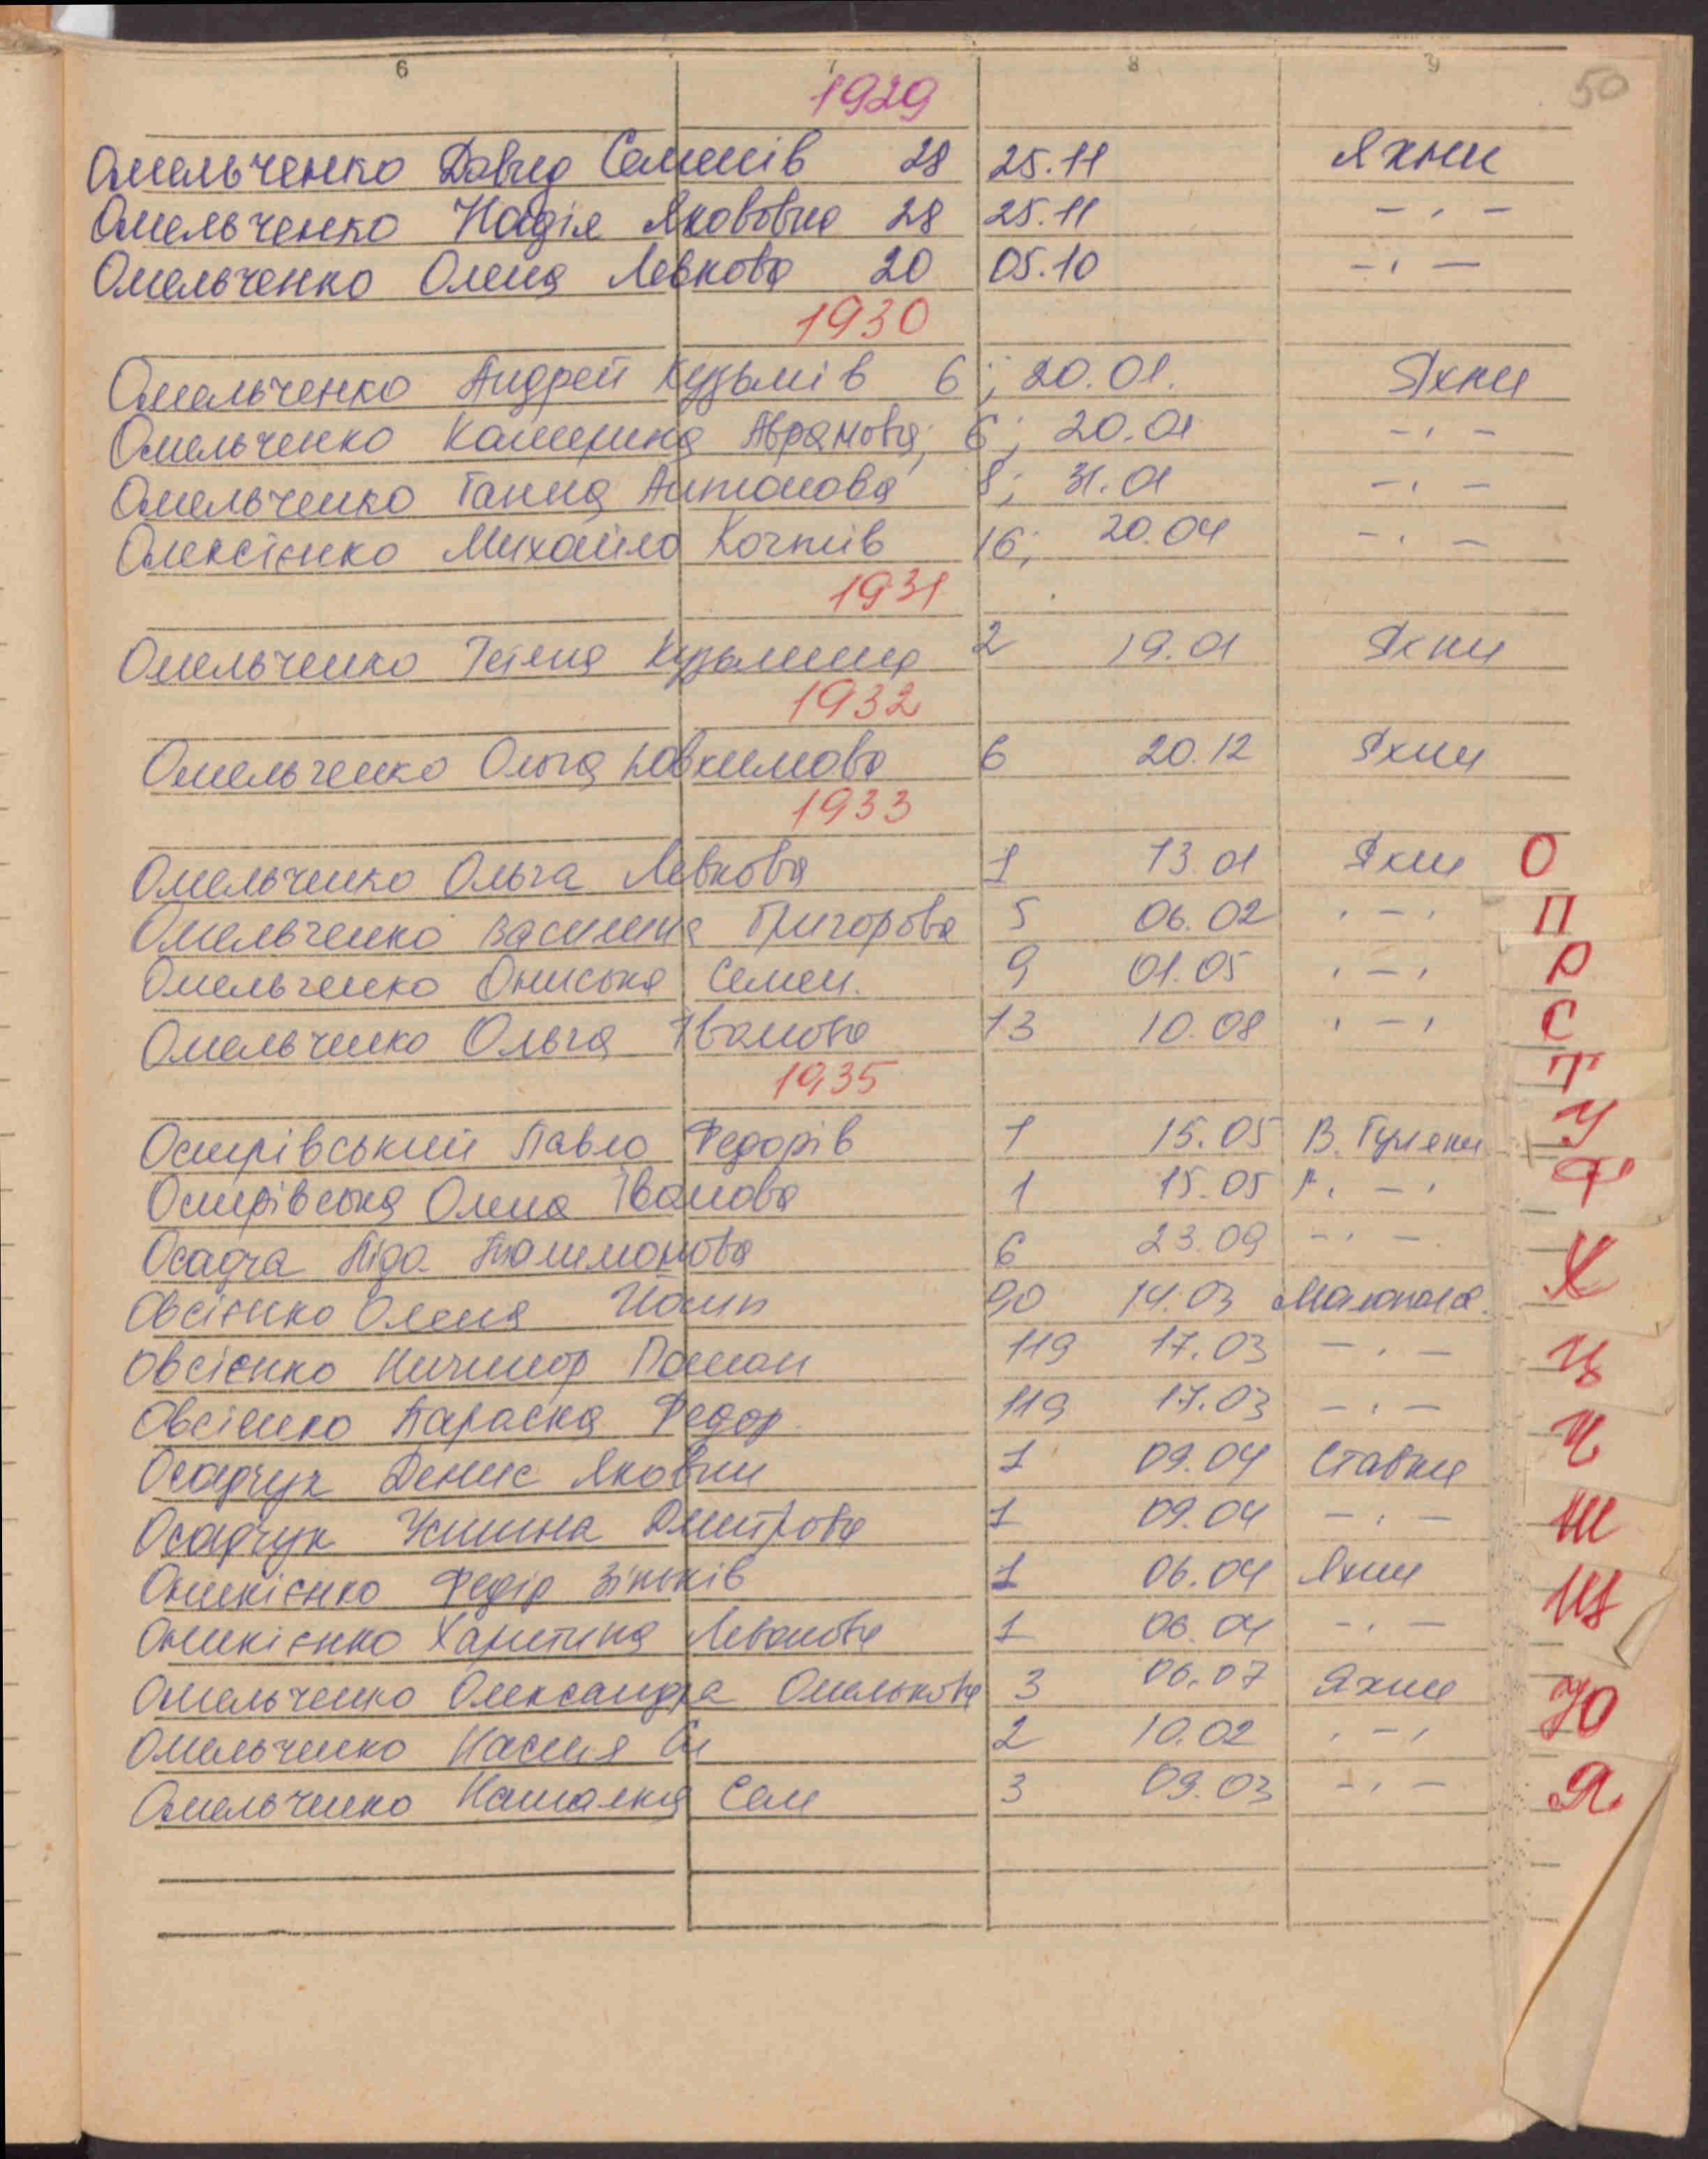 6 7 8 9
50
1929
Омельченко Давид Семенів 28 25.11 Яхни
Омельченко Надія Яковова 28 25.11 - " -
Омельченко Олена Левкова 20 05.10 - " -
1930
Омельченко Андрей Кузьмів 6; 20.01. Яхни
Омельченко Катерина Аврамова; 6; 20.01 - " -
Омельченко Ганна Антонова 8; 31.01 - " -
Олексієнко Михайло 16; 20.04 - " -
1931
Омельченко 2 19.01 Яхни
1932
Омельченко Ольга Ювхимова 6 20.12 Яхни
1933
Омельченко Ольга Левкова 1 13.01 Яхни О
Омельченко Василина Григорова 5 06.02 " - " П
Омельченко Ониська Семен. 9 01.05 " - " Р
Омельченко Ольга Іванова 13 10.08 " - " С
1935 Т
Острівський Павло Федорів 1 15.05 В. Гуляки У
Острівська Олена Іванова 1 15.05 - " - Ф
Осадча Ліда 6 23.09 - " - Х
Овсієнко Олена Йосип 90 14.03
Овсієнко Ничипор Роман 119 17.03 - " - Ц
Овсієнко Параска Федор. 119 17.03 - " -
Осадчук Денис Яковин 1 09.04 Ставки Ч
Осадчук Устина Дмитрова 1 09.04 - " - Ш
Оникієнко Федір Зіньків 1 06.04 Яхни Щ
Оникієнко Харитина Леванова 1 06.04 - " -
Омельченко Олександра Омелькова 3 06.07 Яхни Ю
Омельченко Настя 2 10.02 " - "
Омельченко Наталка Сем 3 09.03 - " - Я